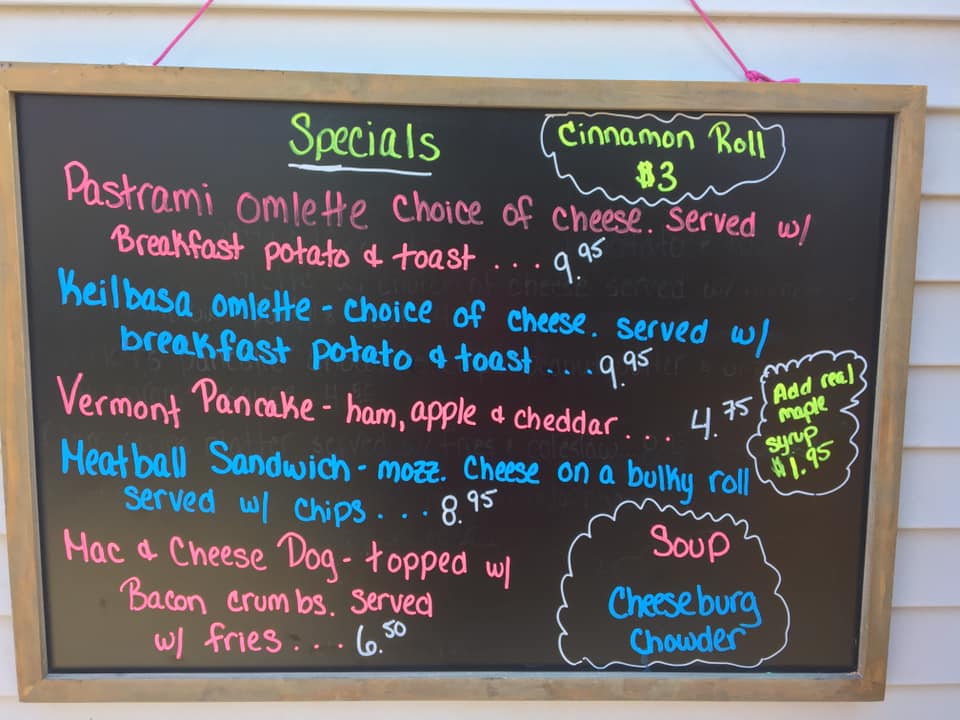 Specials
Cinnamon Roll
$3
Pastrami omlette Choice of cheese. Served w/
Breakfast potato & toast ... 9.95
Keilbasa omlette - choice of cheese. served w/
breakfast potato & toast .... 9.95
Vermont Pancake - ham, apple & cheddar ... 4.75
Add real
maple
syrup
$1.95
Meatball Sandwich - mozz. Cheese on a bulky roll
served w/ chips ... 8.95
Mac & Cheese Dog - topped w/
Bacon crumbs. Served
w/ fries ... 6.50
Soup
Cheeseburg
Chowder